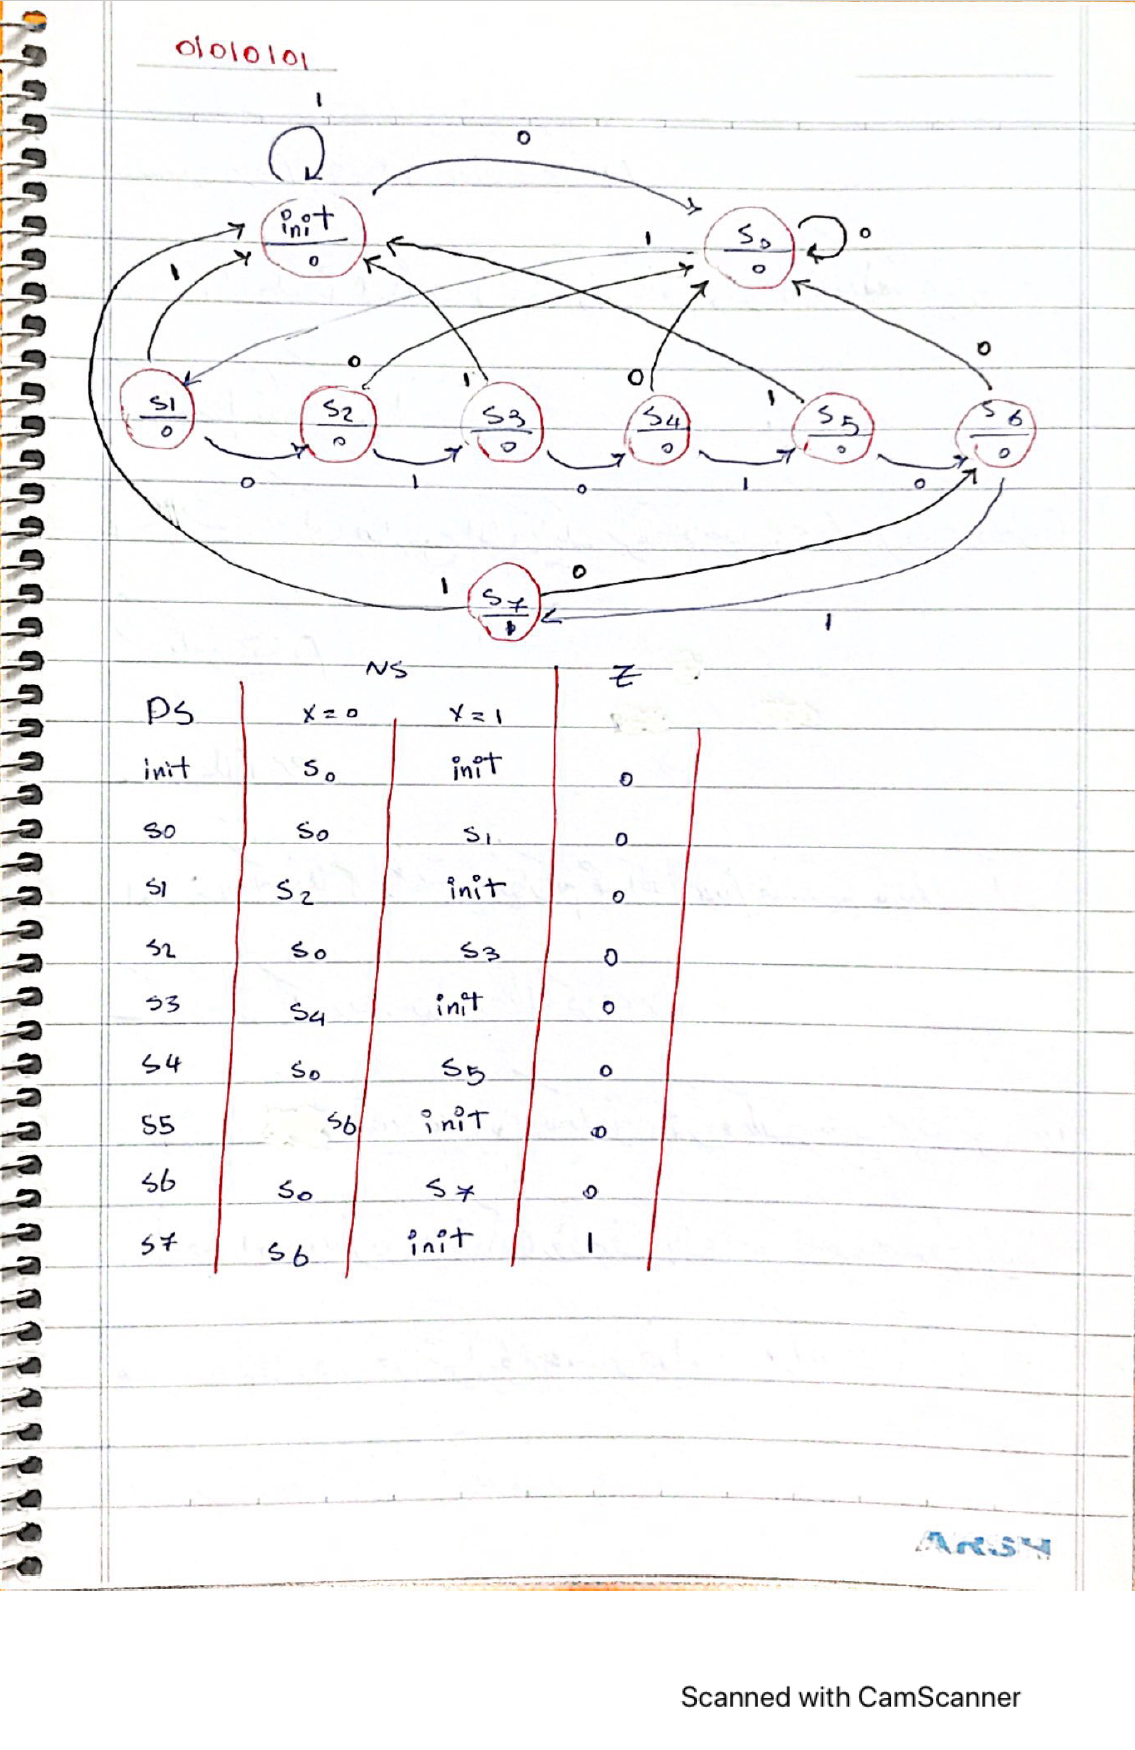 01010101
1
0
init
0
S0
0
0
1
1
0
1
0
1
0
S1
0
S2
0
S3
0
S4
0
S5
0
S6
0
0
1
0
1
0
1
0
S7
1
1
NS
Z
PS
X=0
X=1
init S0 init 0
S0 S0 S1 0
S1 S2 init 0
S2 S0 S3 0
S3 S4 init 0
S4 S0 S5 0
S5 S6 init 0
S6 S0 S7 0
S7 S6 init 1
Scanned with CamScanner